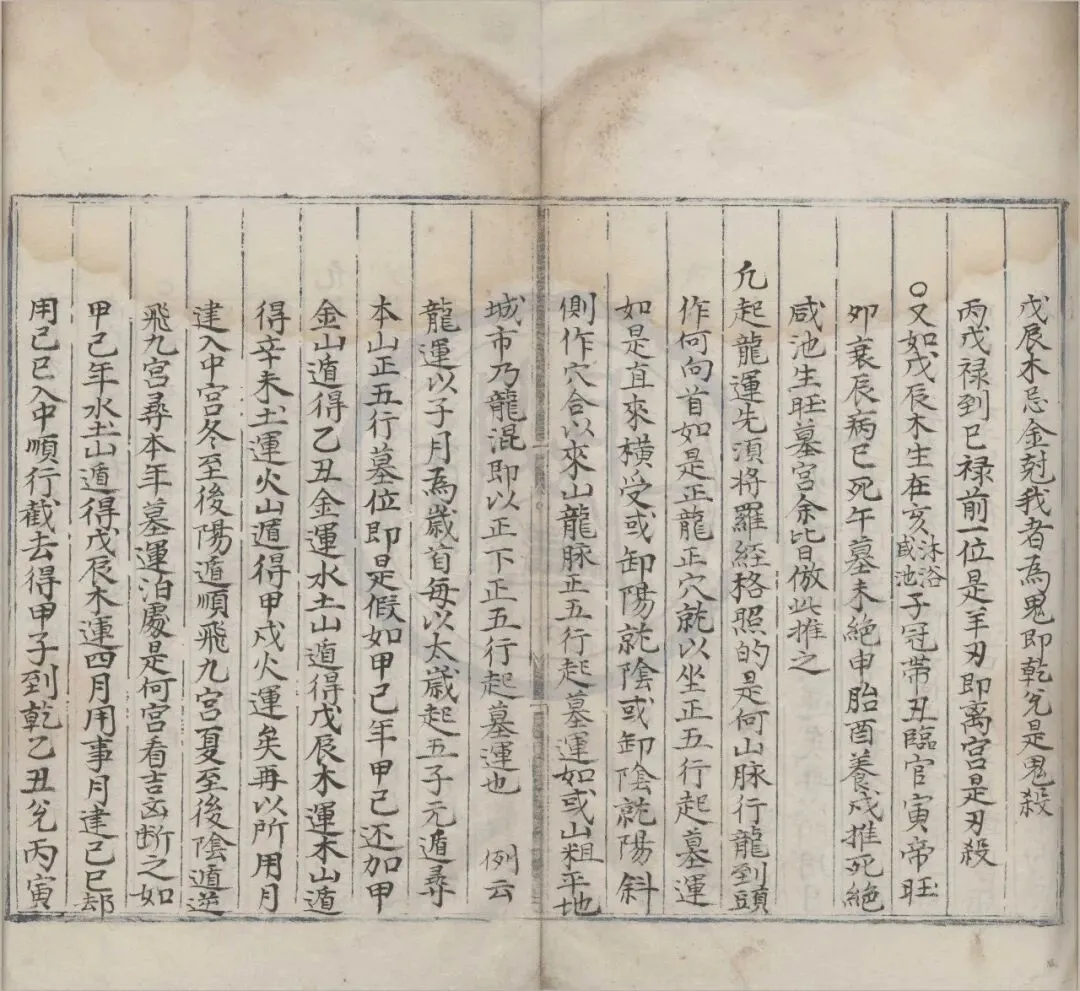 戊辰木忌金尅我者為鬼即乾兊是鬼殺
丙戊禄到巳禄前一位是羊刃即离宫是刃殺
○又如戊辰木生在亥沐浴咸池子冠帶丑臨官寅帝旺
夘衰辰病巳死午墓未絶申胎酉養戌推死絶
咸池生旺墓宫余皆倣此推之
凢起龍運先須將羅經格照的是何山脉行龍到頭
作何向首如是正龍正穴就以坐正五行起墓運
如是直來横受或卸陽就陰或卸陰就陽斜
側作穴合以來山龍脉正五行起墓運如或山粗平地
城市乃龍混即以正下正五行起墓運也　例云
龍運以子月為歳首每以太歳起五子元遁尋
本山正五行墓位即是假如甲己年甲己还加甲
金山遁得乙丑金運水土山遁得戊辰木運木山遁
得辛未土運火山遁得甲戌火運矣再以所用月
建入中宫冬至後陽遁順飛九宫夏至後陰遁逆
飛九宫尋本年墓運泊處是何宫看吉凶断之如
甲己年水土山遁得戊辰木運四月用事月建己巳却
用己巳入中順行截去得甲子到乾乙丑兊丙寅